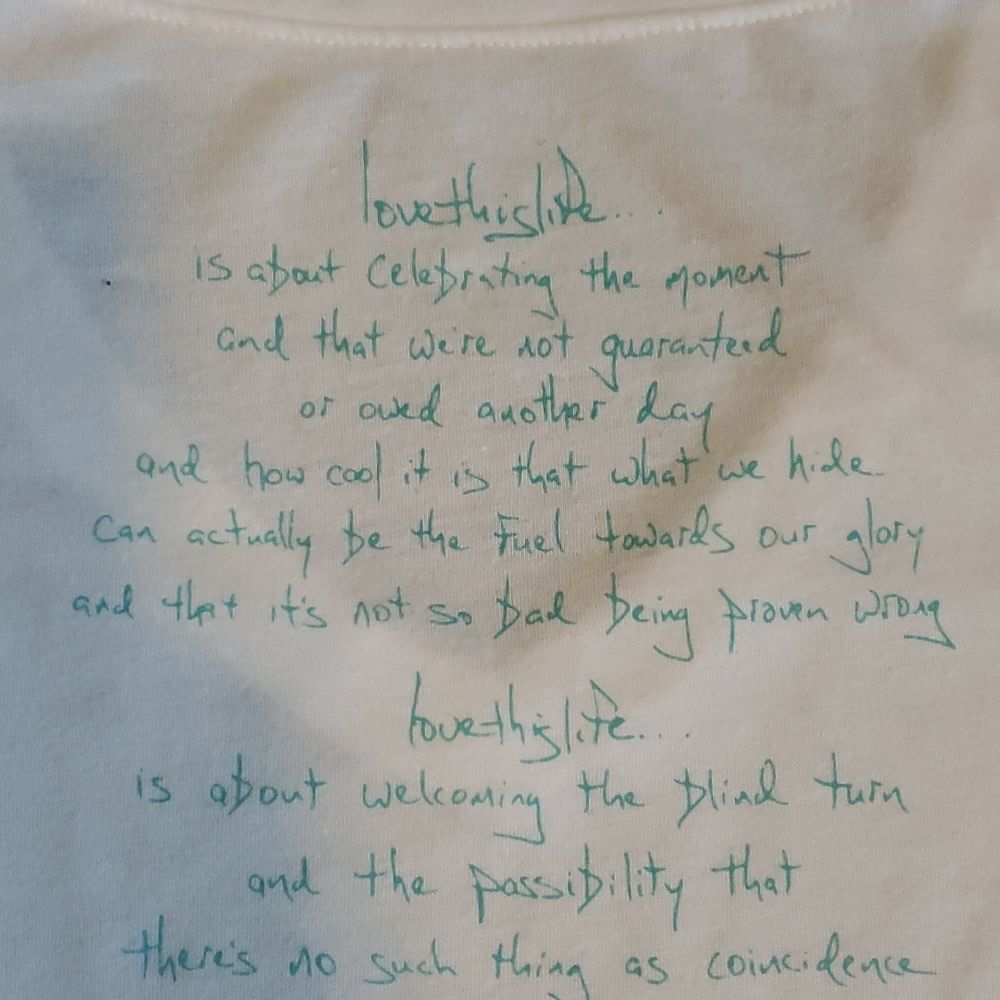 lovethislife....
is about celebrating the moment
and that we're not guaranteed
or owed another day
and how cool it is that what we hide
can actually be the fuel towards our glory
and that it's not so bad being proven wrong
lovethislife....
is about welcoming the blind turn
and the possibility that
there's no such thing as coincidence